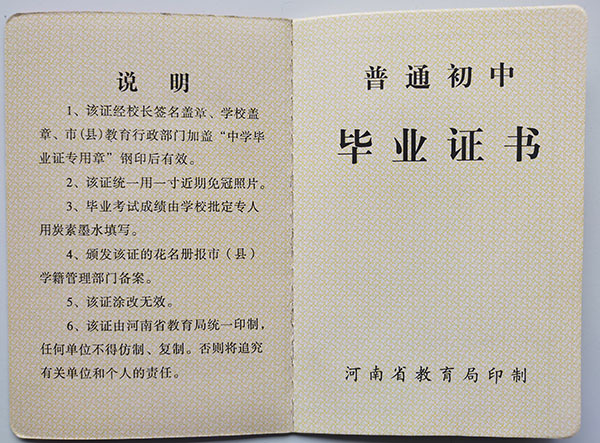 说明
1、该证经校长签名盖章、学校盖
章、市(县)教育行政部门加盖“中学毕
业证专用章”钢印后有效。
2、该证统一用一寸近期免冠照片。
3、毕业考试成绩由学校批定专人
用炭素墨水填写。
4、颁发该证的花名册报市(县)
学籍管理部门备案。
5、该证涂改无效。
6、该证由河南省教育局统一印制，
任何单位不得仿制、复制。否则将追究
有关单位和个人的责任。
普通初中
毕业证书
河南省教育局印制